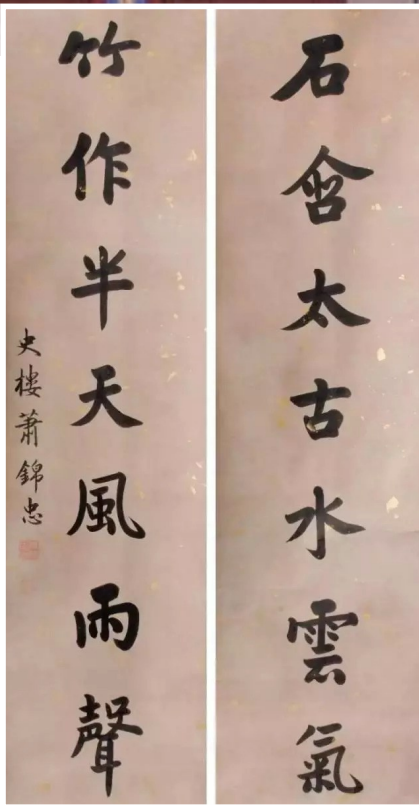 石含太古水雲氣
竹作半天風雨聲
史樓蕭錦忠